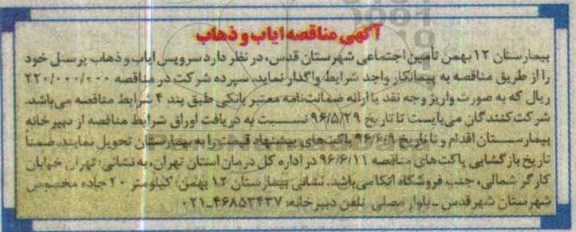 آگهی مناقصه ایاب و ذهاب
بیمارستان ۱۲ بهمن تأمین اجتماعی شهرستان قدس، در نظر دارد سرویس ایاب و ذهاب پرسنل خود
را از طریق مناقصه به پیمانکار واجد شرایط واگذار نماید، سپرده شرکت در مناقصه ۲۲۰/۰۰۰/۰۰۰
ریال که به صورت واریز وجه نقد یا ارائه ضمانت‌نامه معتبر بانکی طبق بند ۴ شرایط مناقصه می‌باشد.
شرکت کنندگان می‌بایست تا تاریخ ۹۶/۵/۲۹ نسبت به دریافت اوراق شرایط مناقصه از دبیرخانه
بیمارستان اقدام و تا تاریخ ۹۶/۶/۹ پاکت‌های پیشنهاد قیمت را به بیمارستان تحویل نمایند. ضمناً
تاریخ بازگشایی پاکت‌های مناقصه ۹۶/۶/۱۱ در اداره کل درمان استان تهران، به نشانی: تهران خیابان
کارگر شمالی، جنب فروشگاه اتکا می‌باشد. نشانی بیمارستان ۱۲ بهمن: کیلومتر ۲۰ جاده مخصوص
شهرستان شهرقدس ـ بلوار مصلی تلفن دبیرخانه: ۴۶۸۵۳۴۳۷-۰۲۱